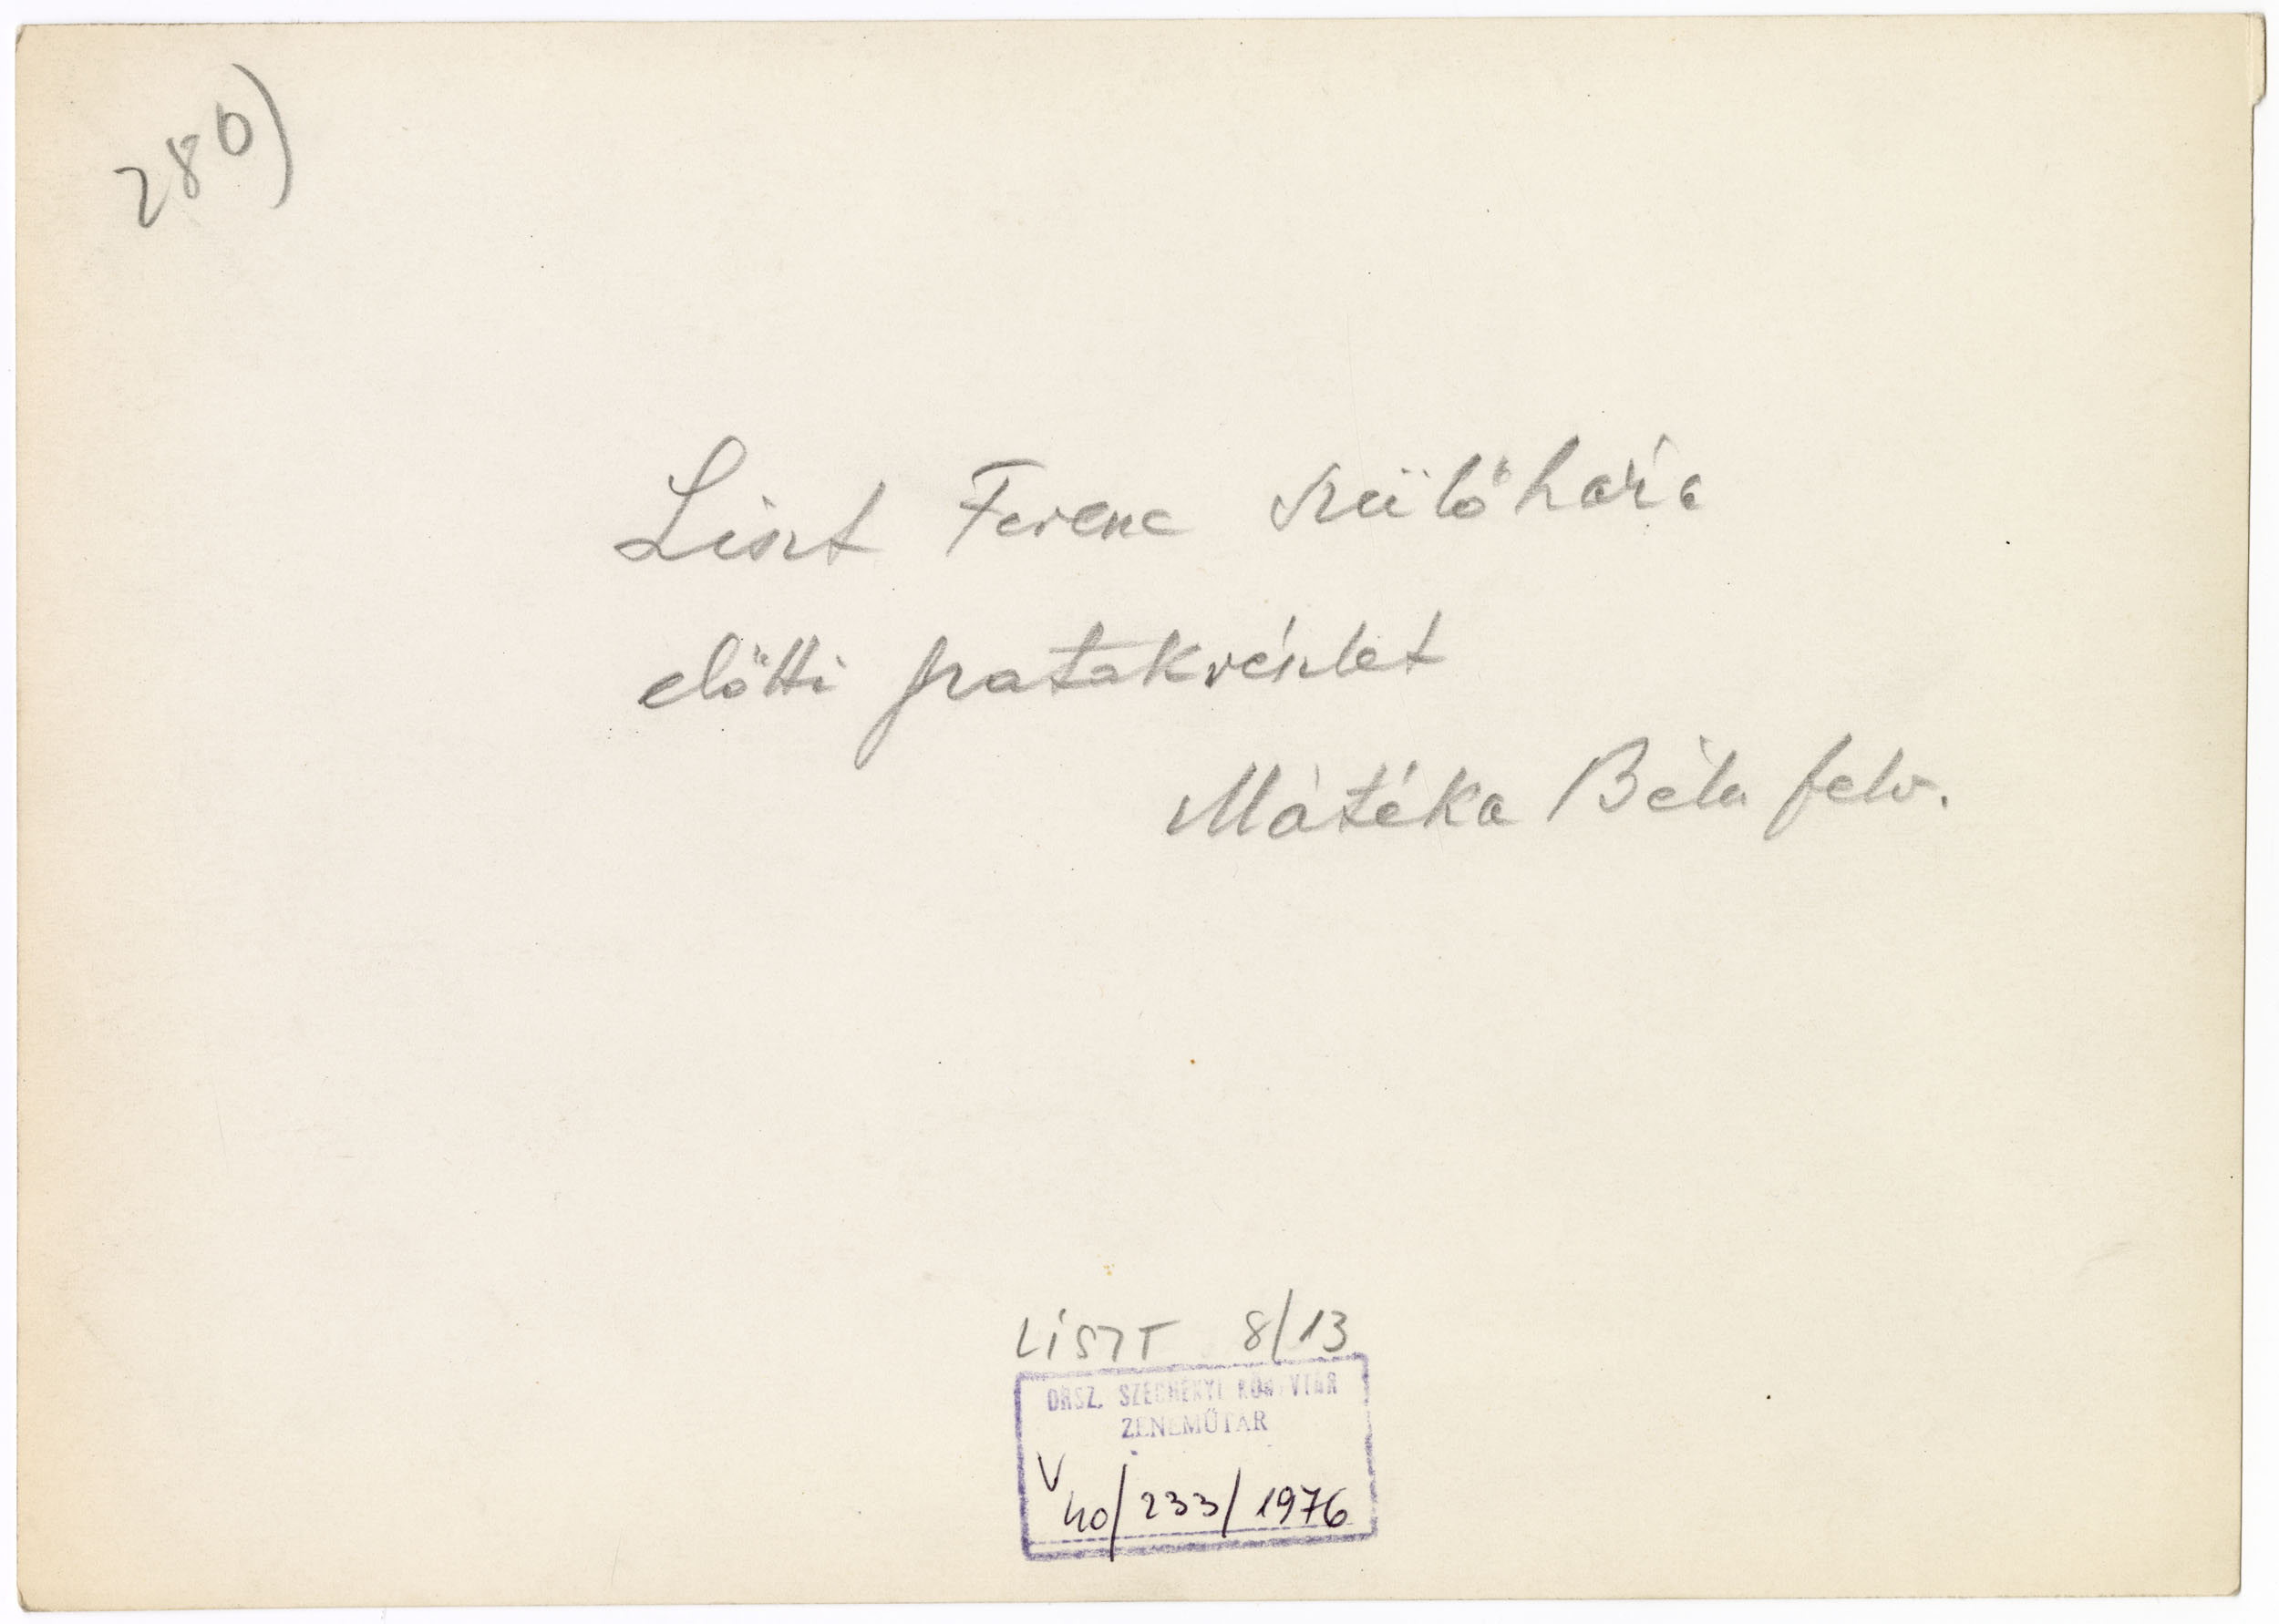 280)
Liszt Ferenc szülőháza
előtti patakrészlet
Mátéka Béla felv.
LISZT 8/13
ORSZ. SZÉCHÉNYI KÖNYVTÁR
ZENEMŰTÁR
V 40/233/1976